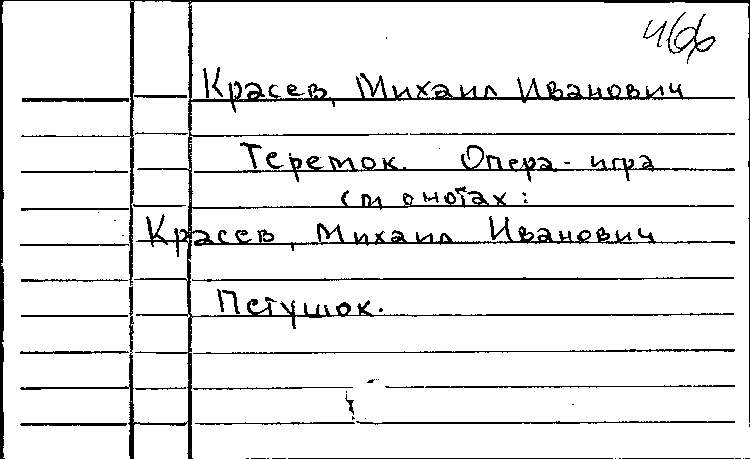 Красев, Михаил Иванович
Теремок. Опера-игра
см о нотах:
Красев, Михаил Иванович
Петушок.